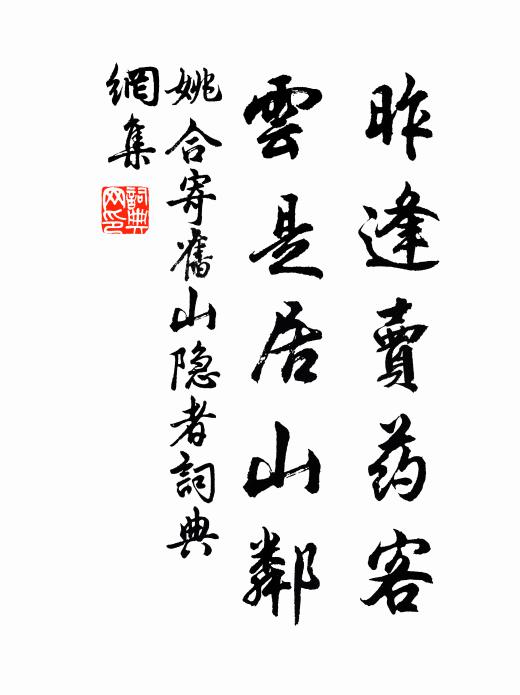 昨逢賣药客
雲是居山鄰
姚合寄舊山隐者詞典
網集
詞典网印